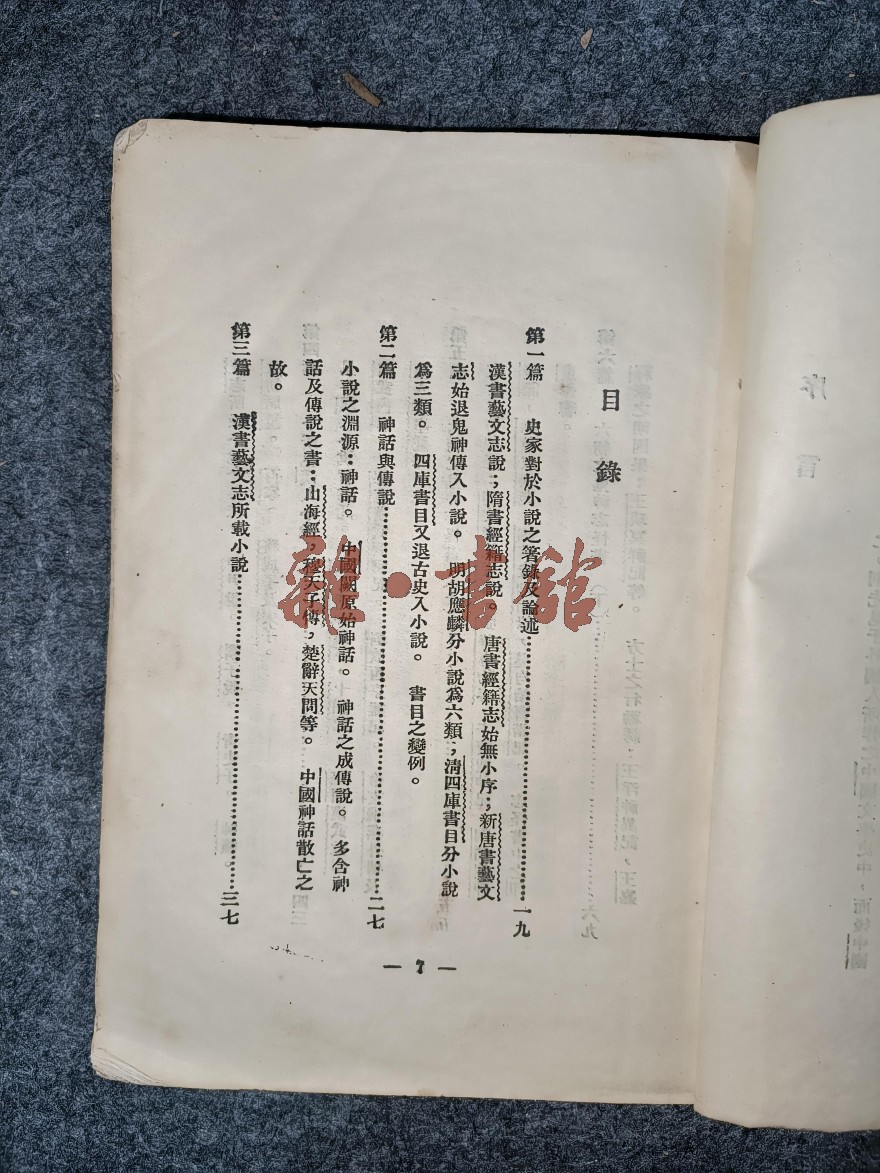 序言
目錄
第一篇　史家對於小說之箸錄及論述……一九
漢書藝文志說；隋書經籍志說。　唐書經籍志始無小序；新唐書藝文
志始退鬼神傳入小說。　明胡應麟分小說爲六類；淸四庫書目分小說
爲三類。　四庫書目又退古史入小說。　書目之變例。
第二篇　神話與傳說……二七
小說之淵源：神話。　中國闕原始神話。　神話之成傳說。　多含神
話及傳說之書：山海經，穆天子傳，楚辭天問等。　中國神話散亡之
故。
第三篇　漢書藝文志所載小說……三七
— 7 —
雜·書館